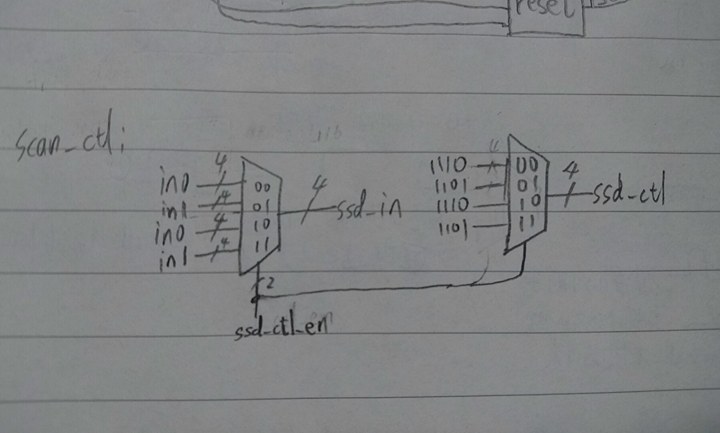 reset
scan_ctl:
in0 4 00
in1 4 01
in0 4 10
in1 4 11
4 ssd_in
2
ssd_ctl_en
1110 4 00
1101 01
1110 10
1101 11
4 ssd_ctl